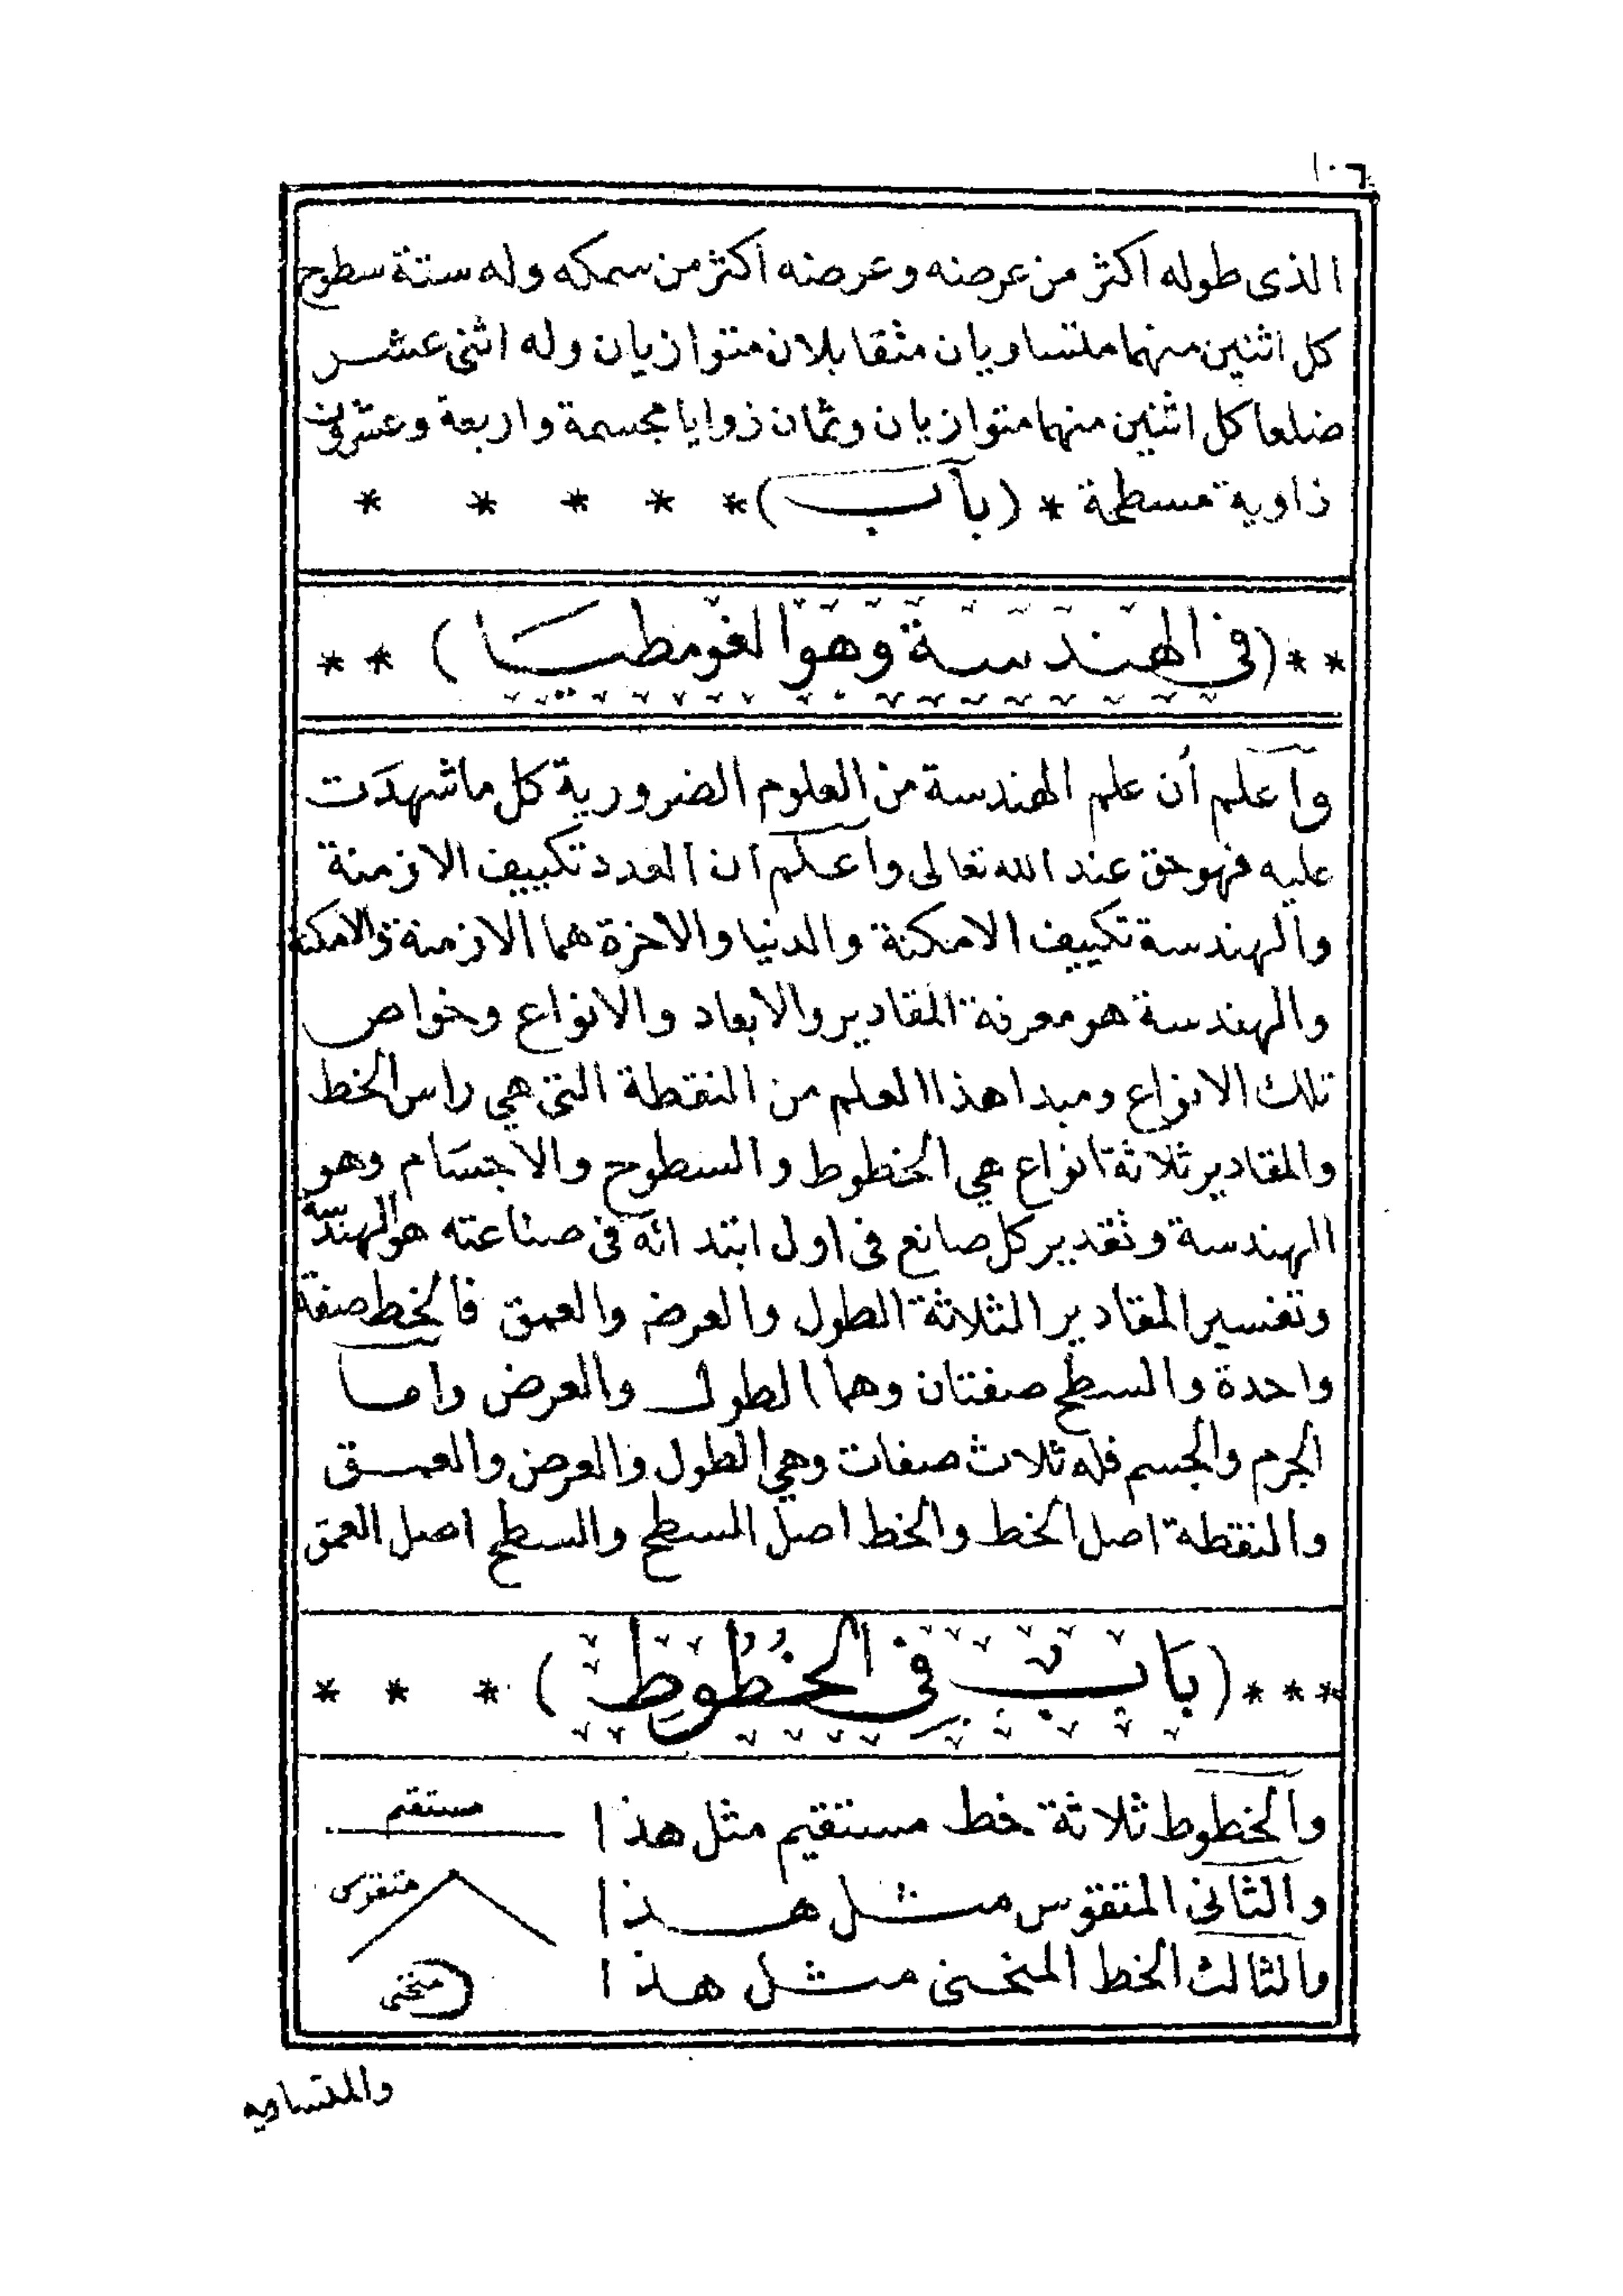 ١٠٦
الذى طوله اكثر من عرضه وعرضه اكثر من سمكه وله ستة سطوح
كل اثنين منهما متساويان متقابلان متوازيان وله اثنى عشر
ضلعا كل اثنين منهما متوازيان وثمان زوايا مجسمة واربعة وعشرون
زاوية مسطحة * (بآب) * * * * *
** (فى الهندسة وهو الغومطيا) **
وآعلم أن علم الهندسة من العلوم الضرورية كل ما شهدَت
عليه فهو حق عند الله تعالى وآعلم ان العدد تكييف الازمنة
والهندسة تكييف الامكنة والدنيا والاخرة هما الازمنة والامكنة
والهندسة هو معرفة المقادير والابعاد والانواع وخواص
تلك الانواع ومبدا هذا العلم من النقطة التى هي راس الخط
والمقادير ثلاثة انواع هي الخطوط والسطوح والاجسَام وهو
الهندسة وتقدير كل صانع فى اول ابتدائه فى صناعته هو الهندسة
وتفسير المقادير الثلاثة الطول والعرض والعمق فالخط صفة
واحدة والسطح صفتان وهما الطول والعرض واما
الجرم والجسم فله ثلاث صفات وهي الطول والعرض والعمق
والنقطة اصل الخط والخط اصل السطح والسطح اصل العمق
*** (بَابٌ فى الخُطُوطِ) * * *
وآلخطوط ثلاثة خط مستقيم مثل هذا مستقيم
والثانى المتقوس مثل هذا متقوس
والثالث الخط المنحنى مثل هذا منحنى
والمتساويه